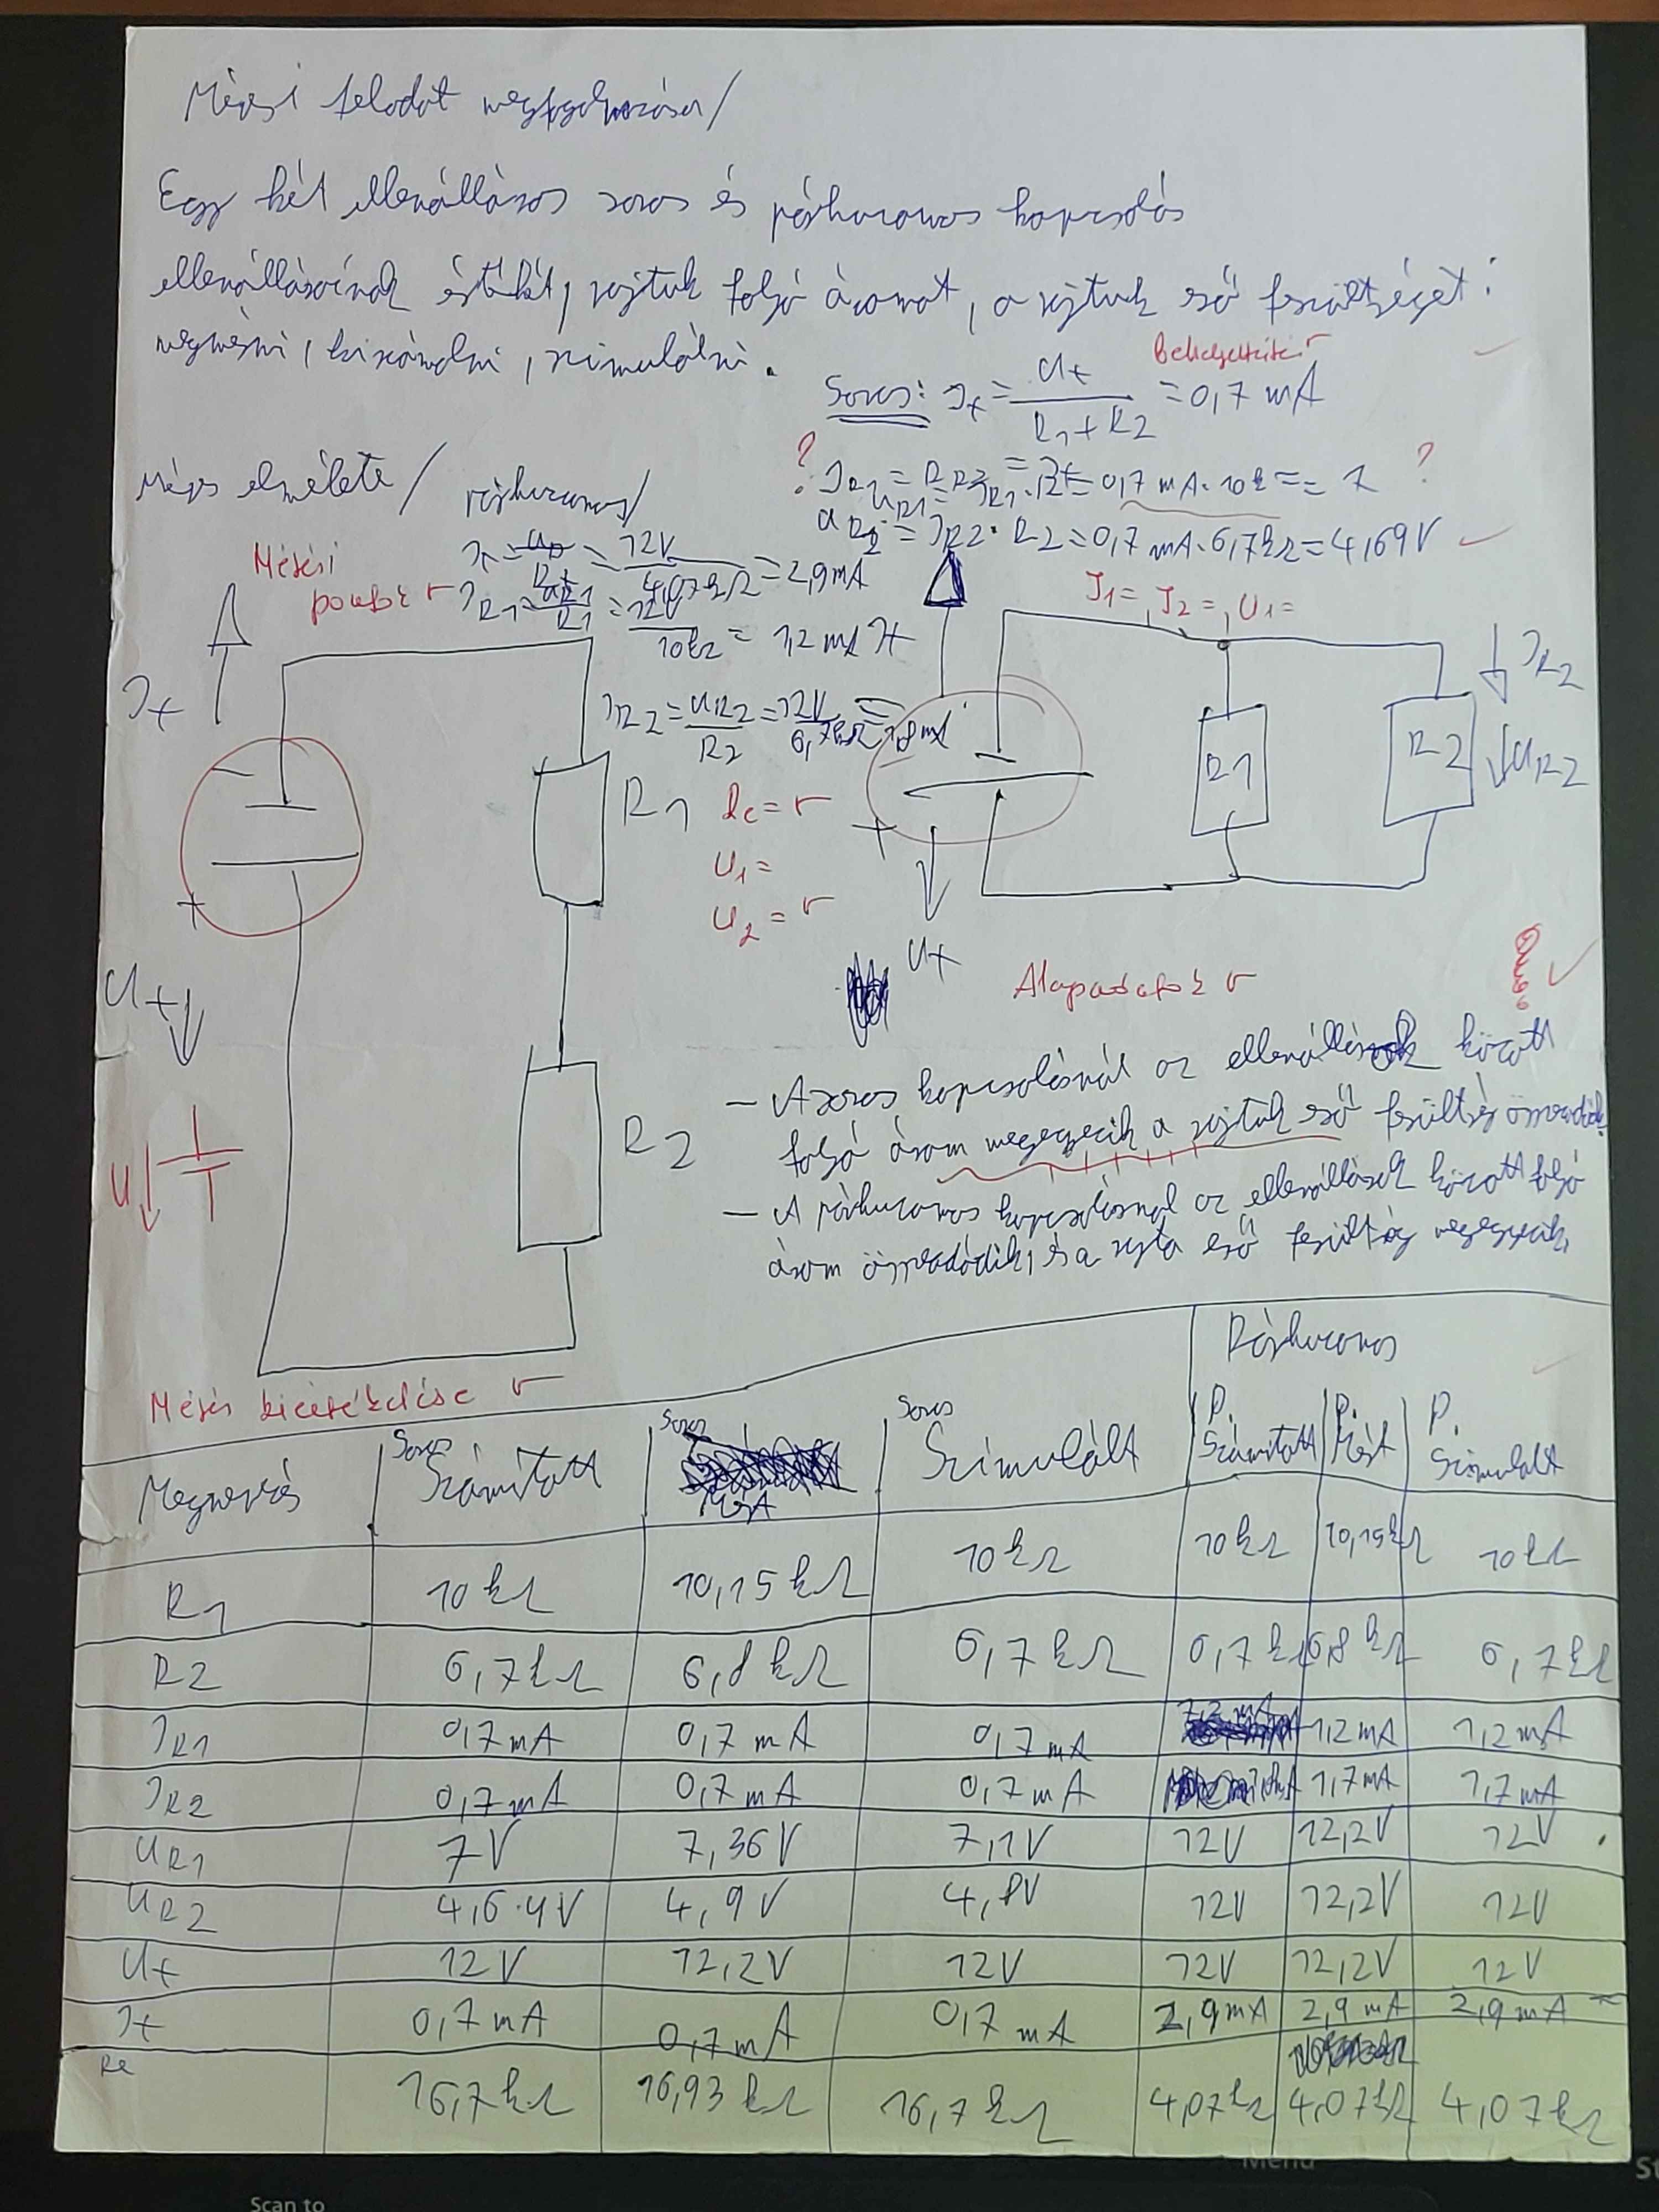 Mérési feladat megfogalmazása/
Egy két ellenállásos soros és párhuzamos kapcsolás
ellenállásainak értékét, rajtuk folyó áramot, a rajtuk eső feszültséget:
megmérni, kiszámolni, szimulálni.
Behelyettesítés
Soros: It = Ut / (R1 + R2) = 0,7 mA
Mérés elmélete/ párhuzamos/
? ?
UR2 = IR2 · R2 = 0,7 mA · 6,7kΩ = 4,69V
Mérési
pontok
= 12V / 4,07kΩ = 2,9mA
IR1 = UR1 / R1 = 12V / 10kΩ = 1,2 mA It
IR2 = UR2 / R2 = 12V / 6,7kΩ = 1,8mA
I1 = , I2 = , U1 =
It
IR2
R1
Re =
U1 =
U2 =
R1
R2
UR2
+
+
Ut
Ut
Alapadatok
R2
U
- A soros kapcsolásnál az ellenállások között
folyó áram megegyezik a rajtuk eső feszültség összeadódik.
- A párhuzamos kapcsolásnál az ellenállások között folyó
áram összeadódik, és a rajta eső feszültség megegyezik.
Mérés kiértékelése
Párhuzamos
Megnevezés Soros Számított Soros Mért Soros Szimulált P. Számított P. Mért P. Szimulált
R1 10kΩ 10,15kΩ 10kΩ 10kΩ 10,15kΩ 10kΩ
R2 6,7kΩ 6,8kΩ 6,7kΩ 6,7k 6,8kΩ 6,7kΩ
IR1 0,7mA 0,7mA 0,7mA 1,2mA 1,2mA 1,2mA
IR2 0,7mA 0,7mA 0,7mA 1,7mA 1,7mA
UR1 7V 7,36V 7,1V 12V 12,2V 12V
UR2 4,6·4V 4,9V 4,8V 12V 12,2V 12V
Ut 12V 12,2V 12V 12V 12,2V 12V
It 0,7mA 0,7mA 0,7mA 2,9mA 2,9mA 2,9mA
Re 16,7kΩ 16,93kΩ 16,7kΩ 4,07kΩ 4,07kΩ 4,07kΩ
Menu
Scan to
St